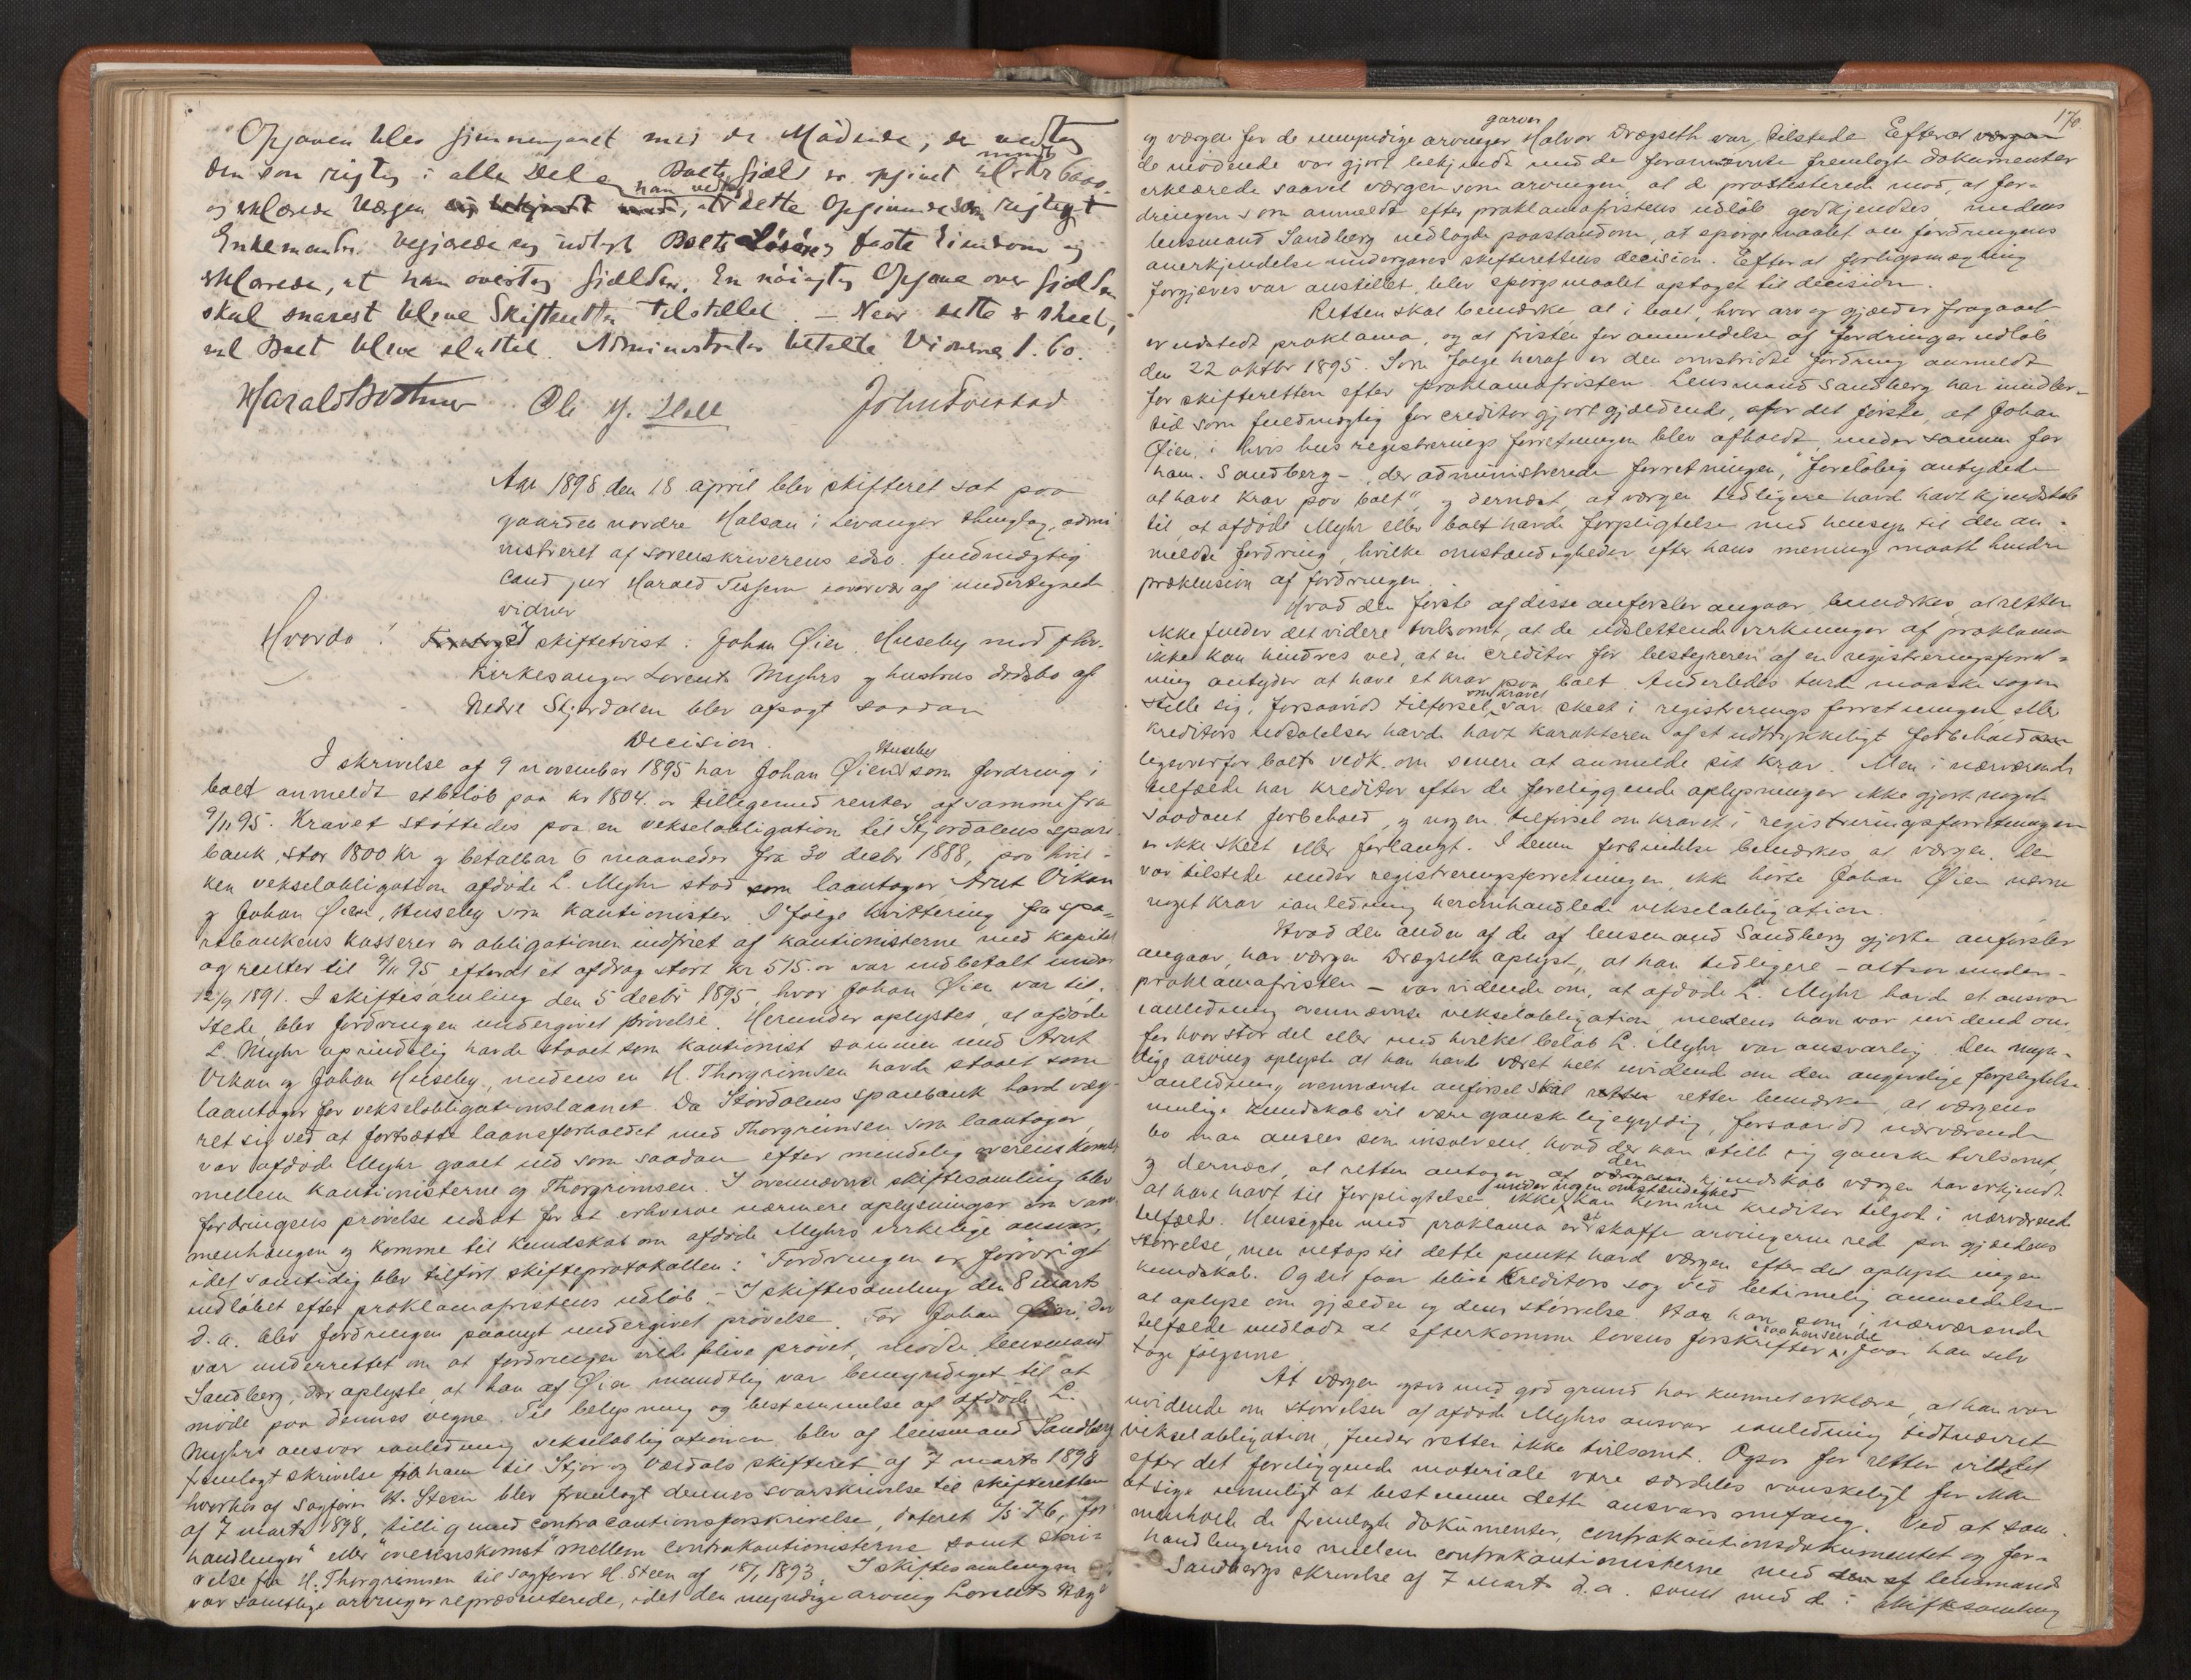 Opgaven blev gjennemgaaet med de Mødende, der vedtog
den som rigtig i alle Dele. Boets Gjæld er opgivet til mindst Kr 6000.
og erklærede Værgen, at han vedtog dette Opgivende som rigtigt
Enkemanden begjærede sig udlagt Boets Løsøre og faste Eiendom og
erklærede, at han overtog Gjælden. En nøiagtig Opgave over Gjælden
skal snarest blive Skifteretten tilstillet. – Naar dette er skeet,
vil Boet blive sluttet. Administrator betalte Vidnerne 1.60.
Harald Bothner Ole M. Hall John Forstad
Aar 1898 den 18 april blev skifteret sat paa
gaarden nordre Halsan i Levanger thinglag, admi-
nistreret af sorenskriverens edsv. fuldmægtig
cand jur Harald Tessem i overvær af undertegnede
vidner
Hvorda: I skiftetvist: Johan Øien, Huseby mod fhv.
kirkesanger Lorents Myhrs og hustrus dødsbo af
Nedre Stjørdalen blev afsagt saadan
Decision.
I skrivelse af 9 november 1895 har Johan Øien Huseby som fordring i
boet anmeldt et beløb paa kr 1804.- tilligemed renter af samme fra
9/11 95. Kravet støttedes paa en vekselobligation til Stjørdalens spare-
bank, stor 1800 kr og betalbar 6 maaneder fra 30 decbr 1888, paa hvil-
ken vekselobligation afdøde L. Myhr stod som laantager, Arnt Vikan
og Johan Øien, Huseby som kautionister. Ifølge kvittering fra spa-
rebankens kasserer er obligationen indfriet af kautionisterne med kapital
og renter til 9/11 95, efterat et afdrag stort kr 515.- var indbetalt under
12/9 1891. I skiftesamling den 5 decbr 1895, hvor Johan Øien var til-
stede, blev fordringen undergivet prøvelse. Herunder oplystes, at afdøde
L. Myhr oprindelig havde staaet som kautionist sammen med Arnt
Vikan og Johan Huseby, medens en H. Thorgrimsen havde staaet som
laantager for vekselobligationslaanet. Da Stjørdalens sparebank havde væg-
ret sig ved at fortsætte laaneforholdet med Thorgrimsen som laantager,
var afdøde Myhr gaaet ind som saadan efter mindelig overenskomst
mellem kautionisterne og Thorgrimsen. I ovennævnte skiftesamling blev
fordringens prøvelse udsat for at erhverve nærmere oplysninger om sam-
menhængen og komme til kundskab om afdøde Myhrs virkelige ansvar,
idet samtidig blev tilført skifteprotokollen: "Fordringen er forøvrigt
indløbet efter proklamafristens udløb". – I skiftesamling den 8 marts
d.a. blev fordringen paanyt undergivet prøvelse. For Johan Øien, der
var underrettet om at fordringen vilde blive prøvet, mødte lensmand
Sandberg, der oplyste, at han af Øien mundtlig var bemyndiget til at
møde paa dennes vegne. Til belysning og bestemmelse af afdøde L.
Myhrs ansvar i anledning vekselobligationen blev af lensmand Sandberg
fremlagt skrivelse fra ham til Stjør og Værdals skifteret af 7 marts 1898
hvorhos af sagfører H. Steen blev fremlagt dennes svarskrivelse til skifteretten
af 7 marts 1898, tilligemed contracautionsforskrivelse, dateret 1/5-76, for-
handlinger" eller "overenskomst" mellem contrakautionisterne samt skri-
velse fra H. Thorgrimsen til sagfører H. Steen af 18/1 1893. I skiftesamlingen
var samtlige arvinger repræsenterede, idet den myndige arving Lorents Hag
170
og værgen for de umyndige arvinger garver Halvor Drøgseth var tilstede. Efterat
de mødende var gjort bekjendt med de forannævnte fremlagte dokumenter
erklærede saavel værgen som arvingen, at de protesterede mod, at for-
dringen som anmeldt efter proklamafristens udløb godkjendtes, medens
lensmand Sandberg nedlagde paastand om, at spørgsmaalet om fordringens
anerkjendelse undergaves skifterettens decision. Efterat forligsmægling
forgjæves var anstillet, blev spørgsmaalet optaget til decision.
Retten skal bemærke at i boet, hvor arv og gjæld er fragaaet
er udstedt proklama, og at fristen for anmeldelse af fordringer udløb
den 22 oktbr 1895. Som følge heraf er den omstridte fordring anmeldt
for skifteretten efter proklamafristen. Lensmand Sandberg har imidler-
tid som fuldmægtig for creditor gjort gjældende, for det første, at Johan
Øien, i hvis hus registreringsforretningen blev afholdt under samme for
ham. Sandberg -, der administrerede forretningen, "foreløbig antydede
at have krav paa boet", og dernæst, at værgen tidligere havde havt kjendskab
til, at afdøde Myhr eller boet havde forpligtelse med hensyn til den an-
meldte fordring, hvilke omstændigheder efter hans mening maatte hindre
præklusion af fordringen.
Hvad den første af disse anførsler angaar, bemærkes, at retten
ikke finder det videre tvilsomt, at de udslettende virkninger af proklama
ikke kan hindres ved, at en creditor for bestyreren af en registreringsforret-
ning antyder at have et krav paa boet. Anderledes turde maaske sagen
stille sig, forsaavidt tilførsel om kravet var skeet i registreringsforretningen eller
kreditors udtalelser havde havt karakteren af et udtrykkeligt forbehold
ligeoverfor boets vedk. om senere at anmelde sit krav. Men i nærværende
tilfælde har kreditor efter de foreliggende oplysninger ikke gjort noget
saadant forbehold, og nogen tilførsel om kravet i registreringsforretningen
er ikke skeet eller forlangt. I denne forbindelse bemærkes at værgen, der
var tilstede under registreringsforretningen, ikke hørte Johan Øien nævne
noget krav i anledning heromhandlede vekselobligation.
Hvad den anden af de af lensmand Sandberg gjorte anførsler
angaar, har værgen Drøgseth oplyst, at han tidligere – altsaa under
proklamafristen – var vidende om, at afdøde L. Myhr havde et ansvar
i anledning ovennævnte vekselobligation, medens han var uvidende om,
for hvor stor del eller med hvilket beløb L. Myhr var ansvarlig. Den myn-
dige arving oplyste at han havde været helt uvidende om den angjældende forpligtelse.
I anledning ovennævnte anførsel skal retten bemærke, at værgens
mulige kundskab vil være ganske ligegyldig, forsaavidt nærværende
bo maa ansees som insolvent, hvad der kan stille sig ganske tvilsomt,
og dernæst, at retten antager, at den kjendskab værgen har erkjendt
at have havt til forpligtelsen ikke under nogen omstændighed kan komme kreditor tilgode i nærværende
tilfælde. Hensigten med proklama er at skaffe arvingerne rede paa gjældens
størrelse, men netop til dette punkt havde værgen efter det oplyste ingen
kundskab. Og det faar blive kreditors sag ved betimelig anmeldelse
at oplyse om gjælden og dens størrelse. Har han som i nærværende
tilfælde undladt at efterkomme lovens forskrifter i saa henseende, faar han selv
tage følgerne.
At værgen ogsaa med god grund har kunnet erklære, at han var
uvidende om størrelsen af afdøde Myhrs ansvar i anledning tidtnævnte
vekselobligation, finder retten ikke tvilsomt. Ogsaa for retten vilde det
efter det foreliggende materiale være særdeles vanskeligt for ikke
at sige umuligt at bestemme dette ansvars omfang. Ved at sam-
menholde de fremlagte dokumenter, contrakautionsdokumentet og for-
handlingerne mellem contrakautionisterne med lensmand
Sandbergs skrivelse af 7 marts d.a. samt med de i skiftesamling